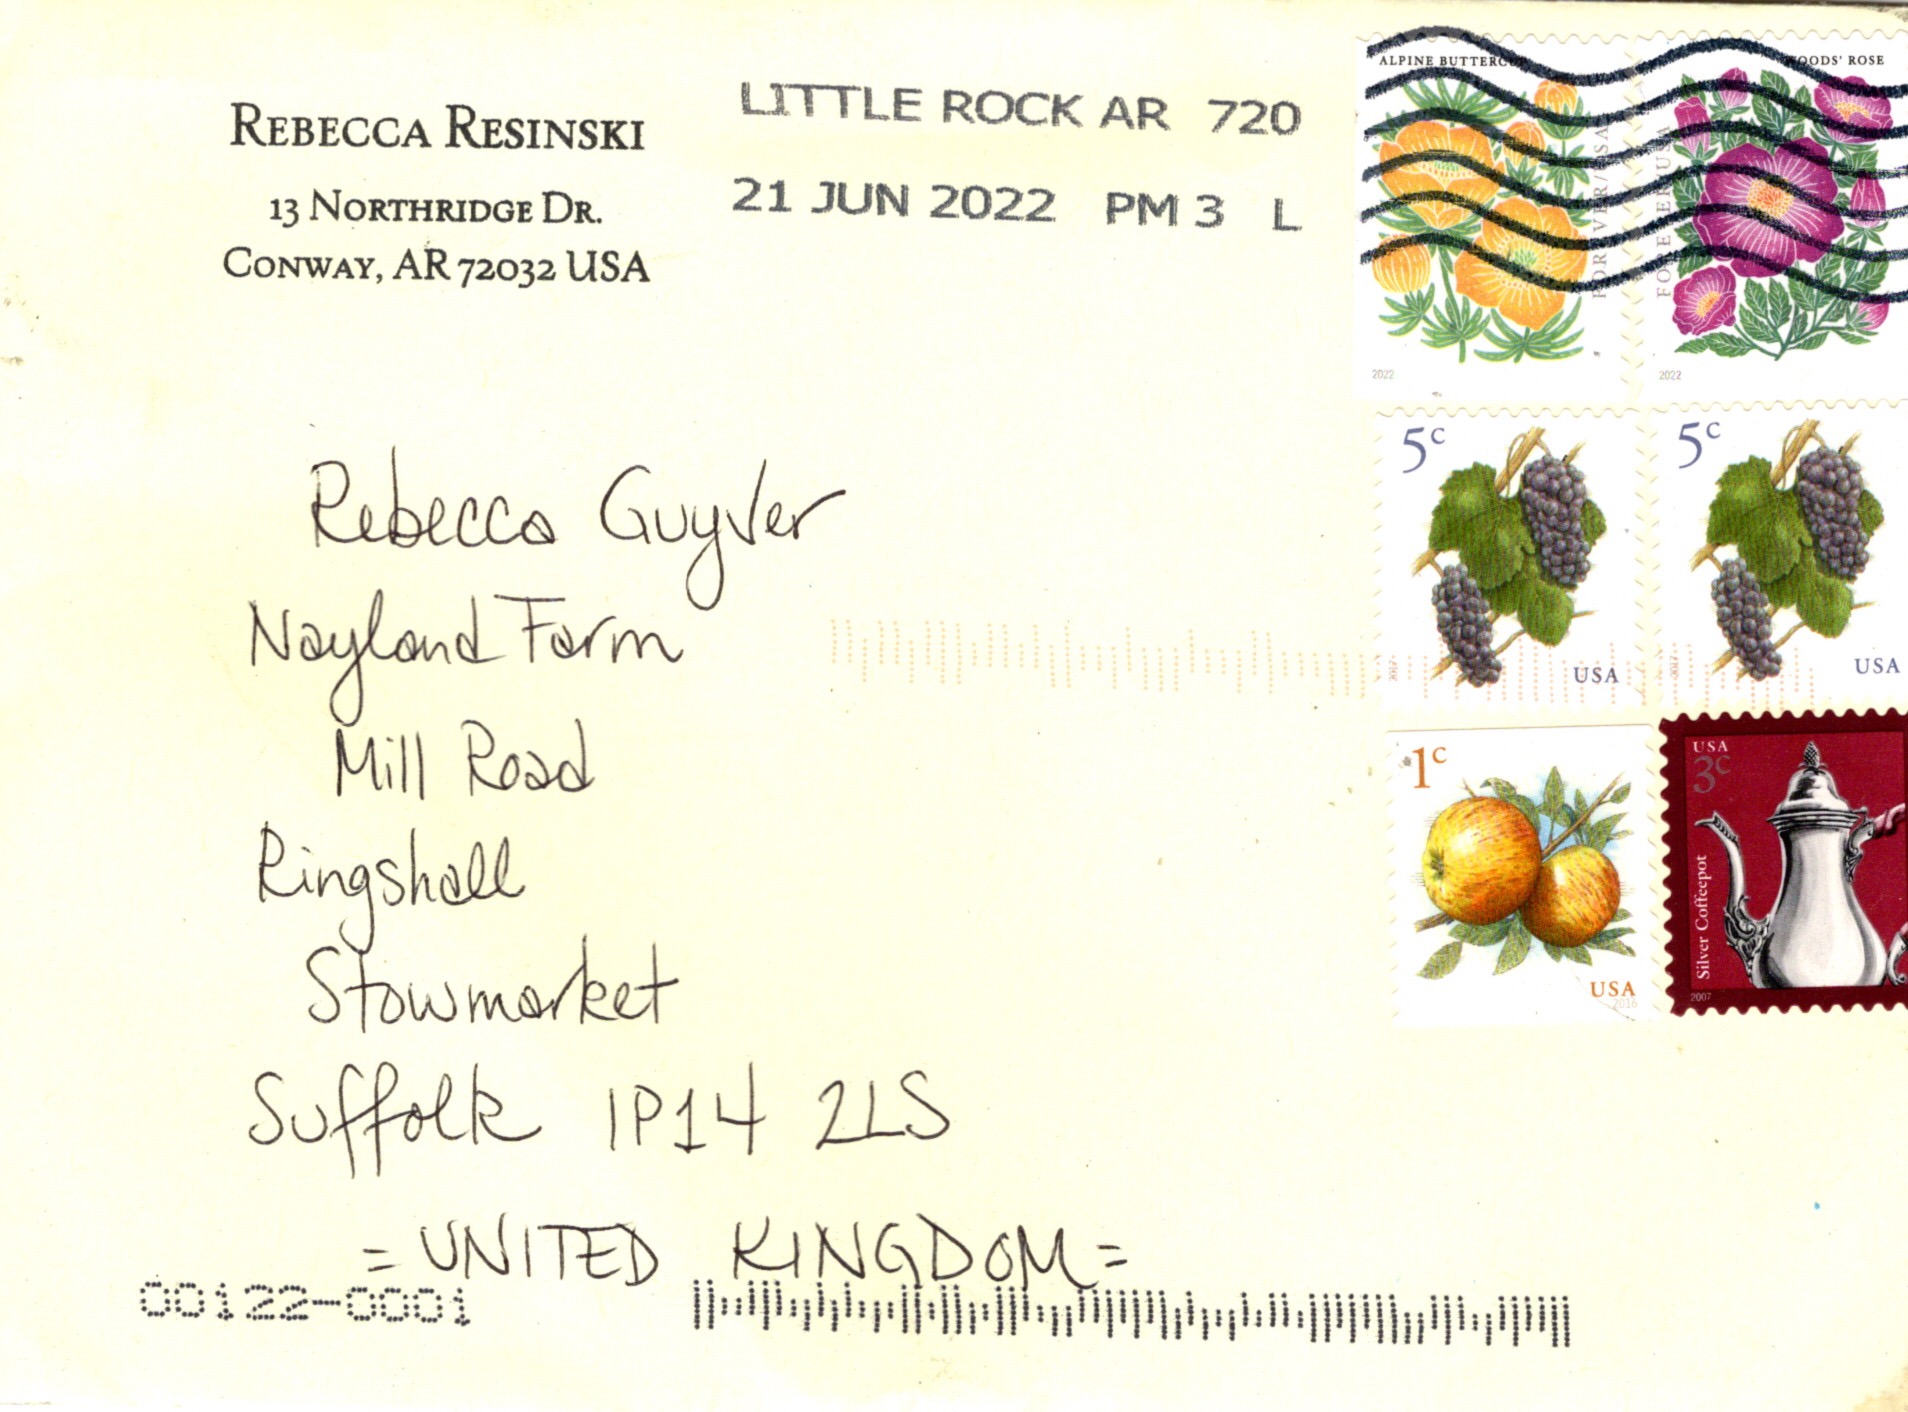 REBECCA RESINSKI
13 NORTHRIDGE DR.
CONWAY, AR 72032 USA
LITTLE ROCK AR 720
21 JUN 2022 PM 3 L
ALPINE BUTTERCUP
FOREVER/USA
2022
WOODS' ROSE
FOREVER/USA
2022
5c
USA
2017
5c
USA
2017
1c
USA
2016
USA
3c
Silver Coffeepot
2007
Rebecca Guyver
Nayland Farm
Mill Road
Ringshall
Stowmarket
Suffolk IP14 2LS
= UNITED KINGDOM =
00122-0001